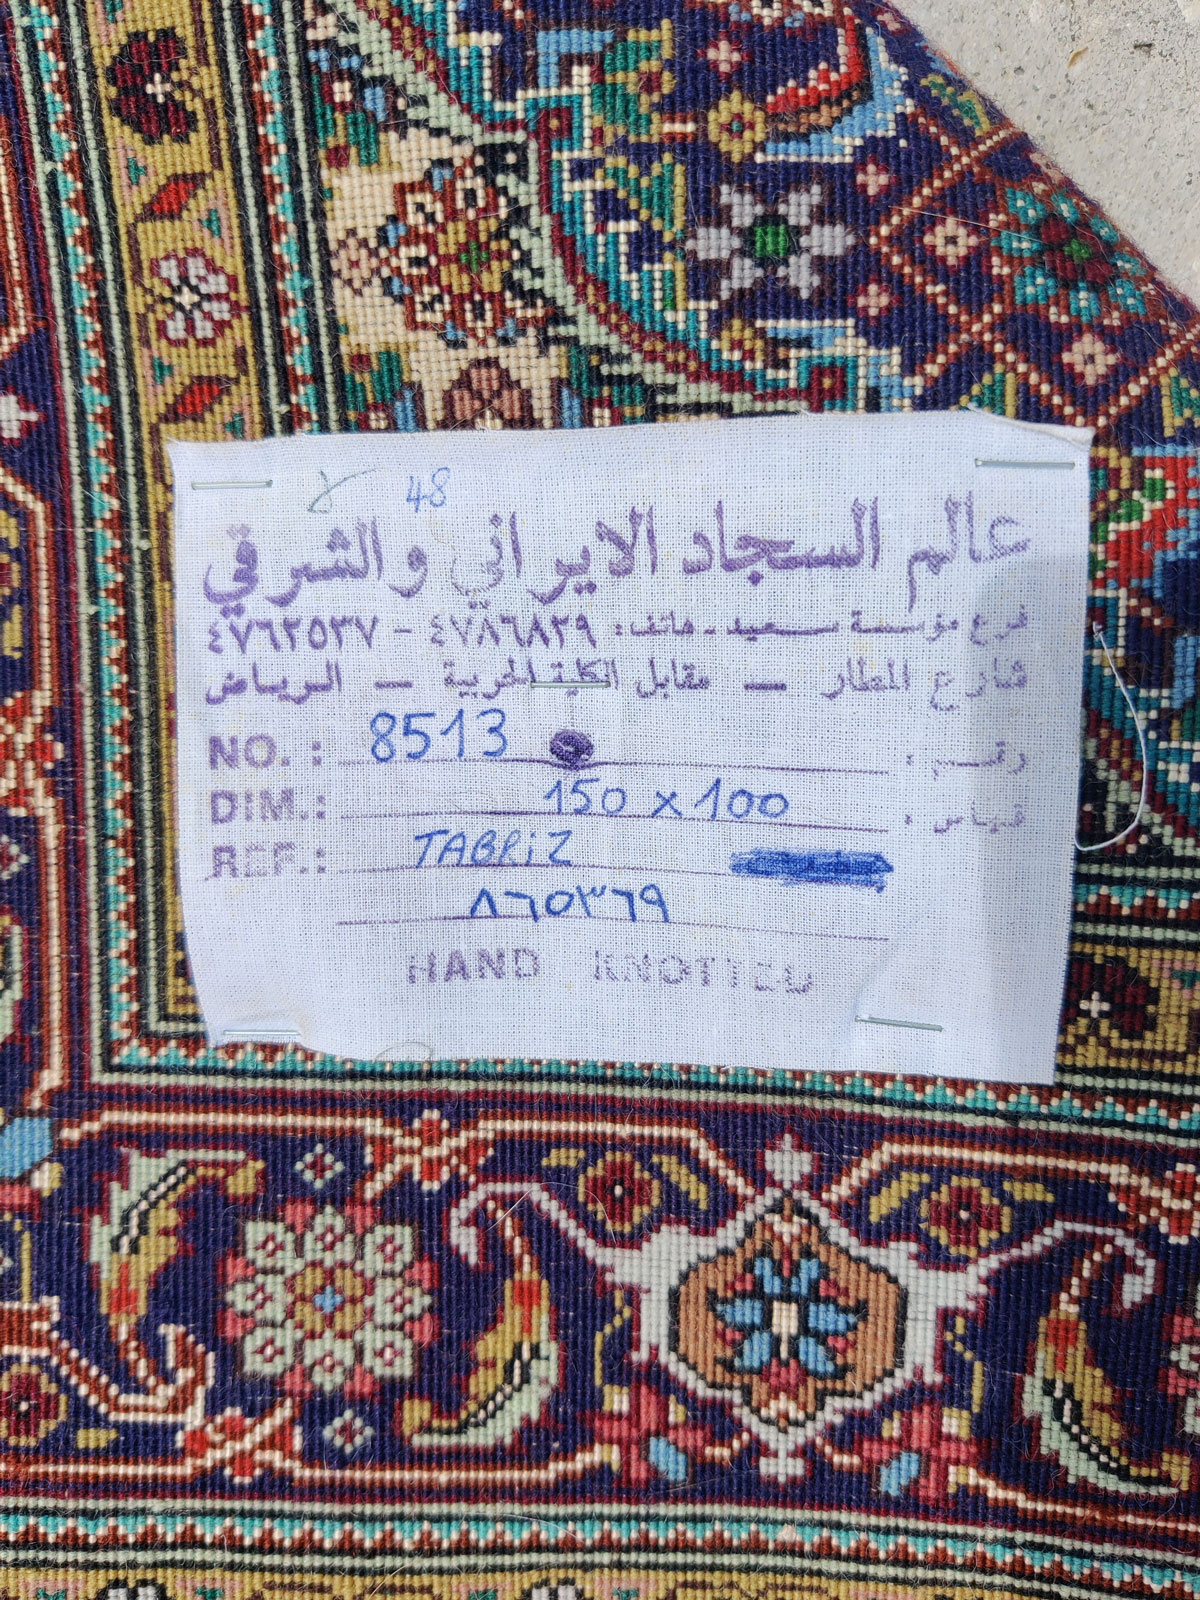 48
عالم السجاد الايراني والشرقي
فرع مؤسسة سعيد - هاتف: ٤٧٨٦٨٢٩ - ٤٧٦٢٥٣٧
شارع المطار — مقابل الكلية الحربية — الرياض
NO. : 8513 رقم :
DIM. : 150 x 100 قياس :
REF. : TABRiZ
٨٦٥٣٦٩
HAND KNOTTED